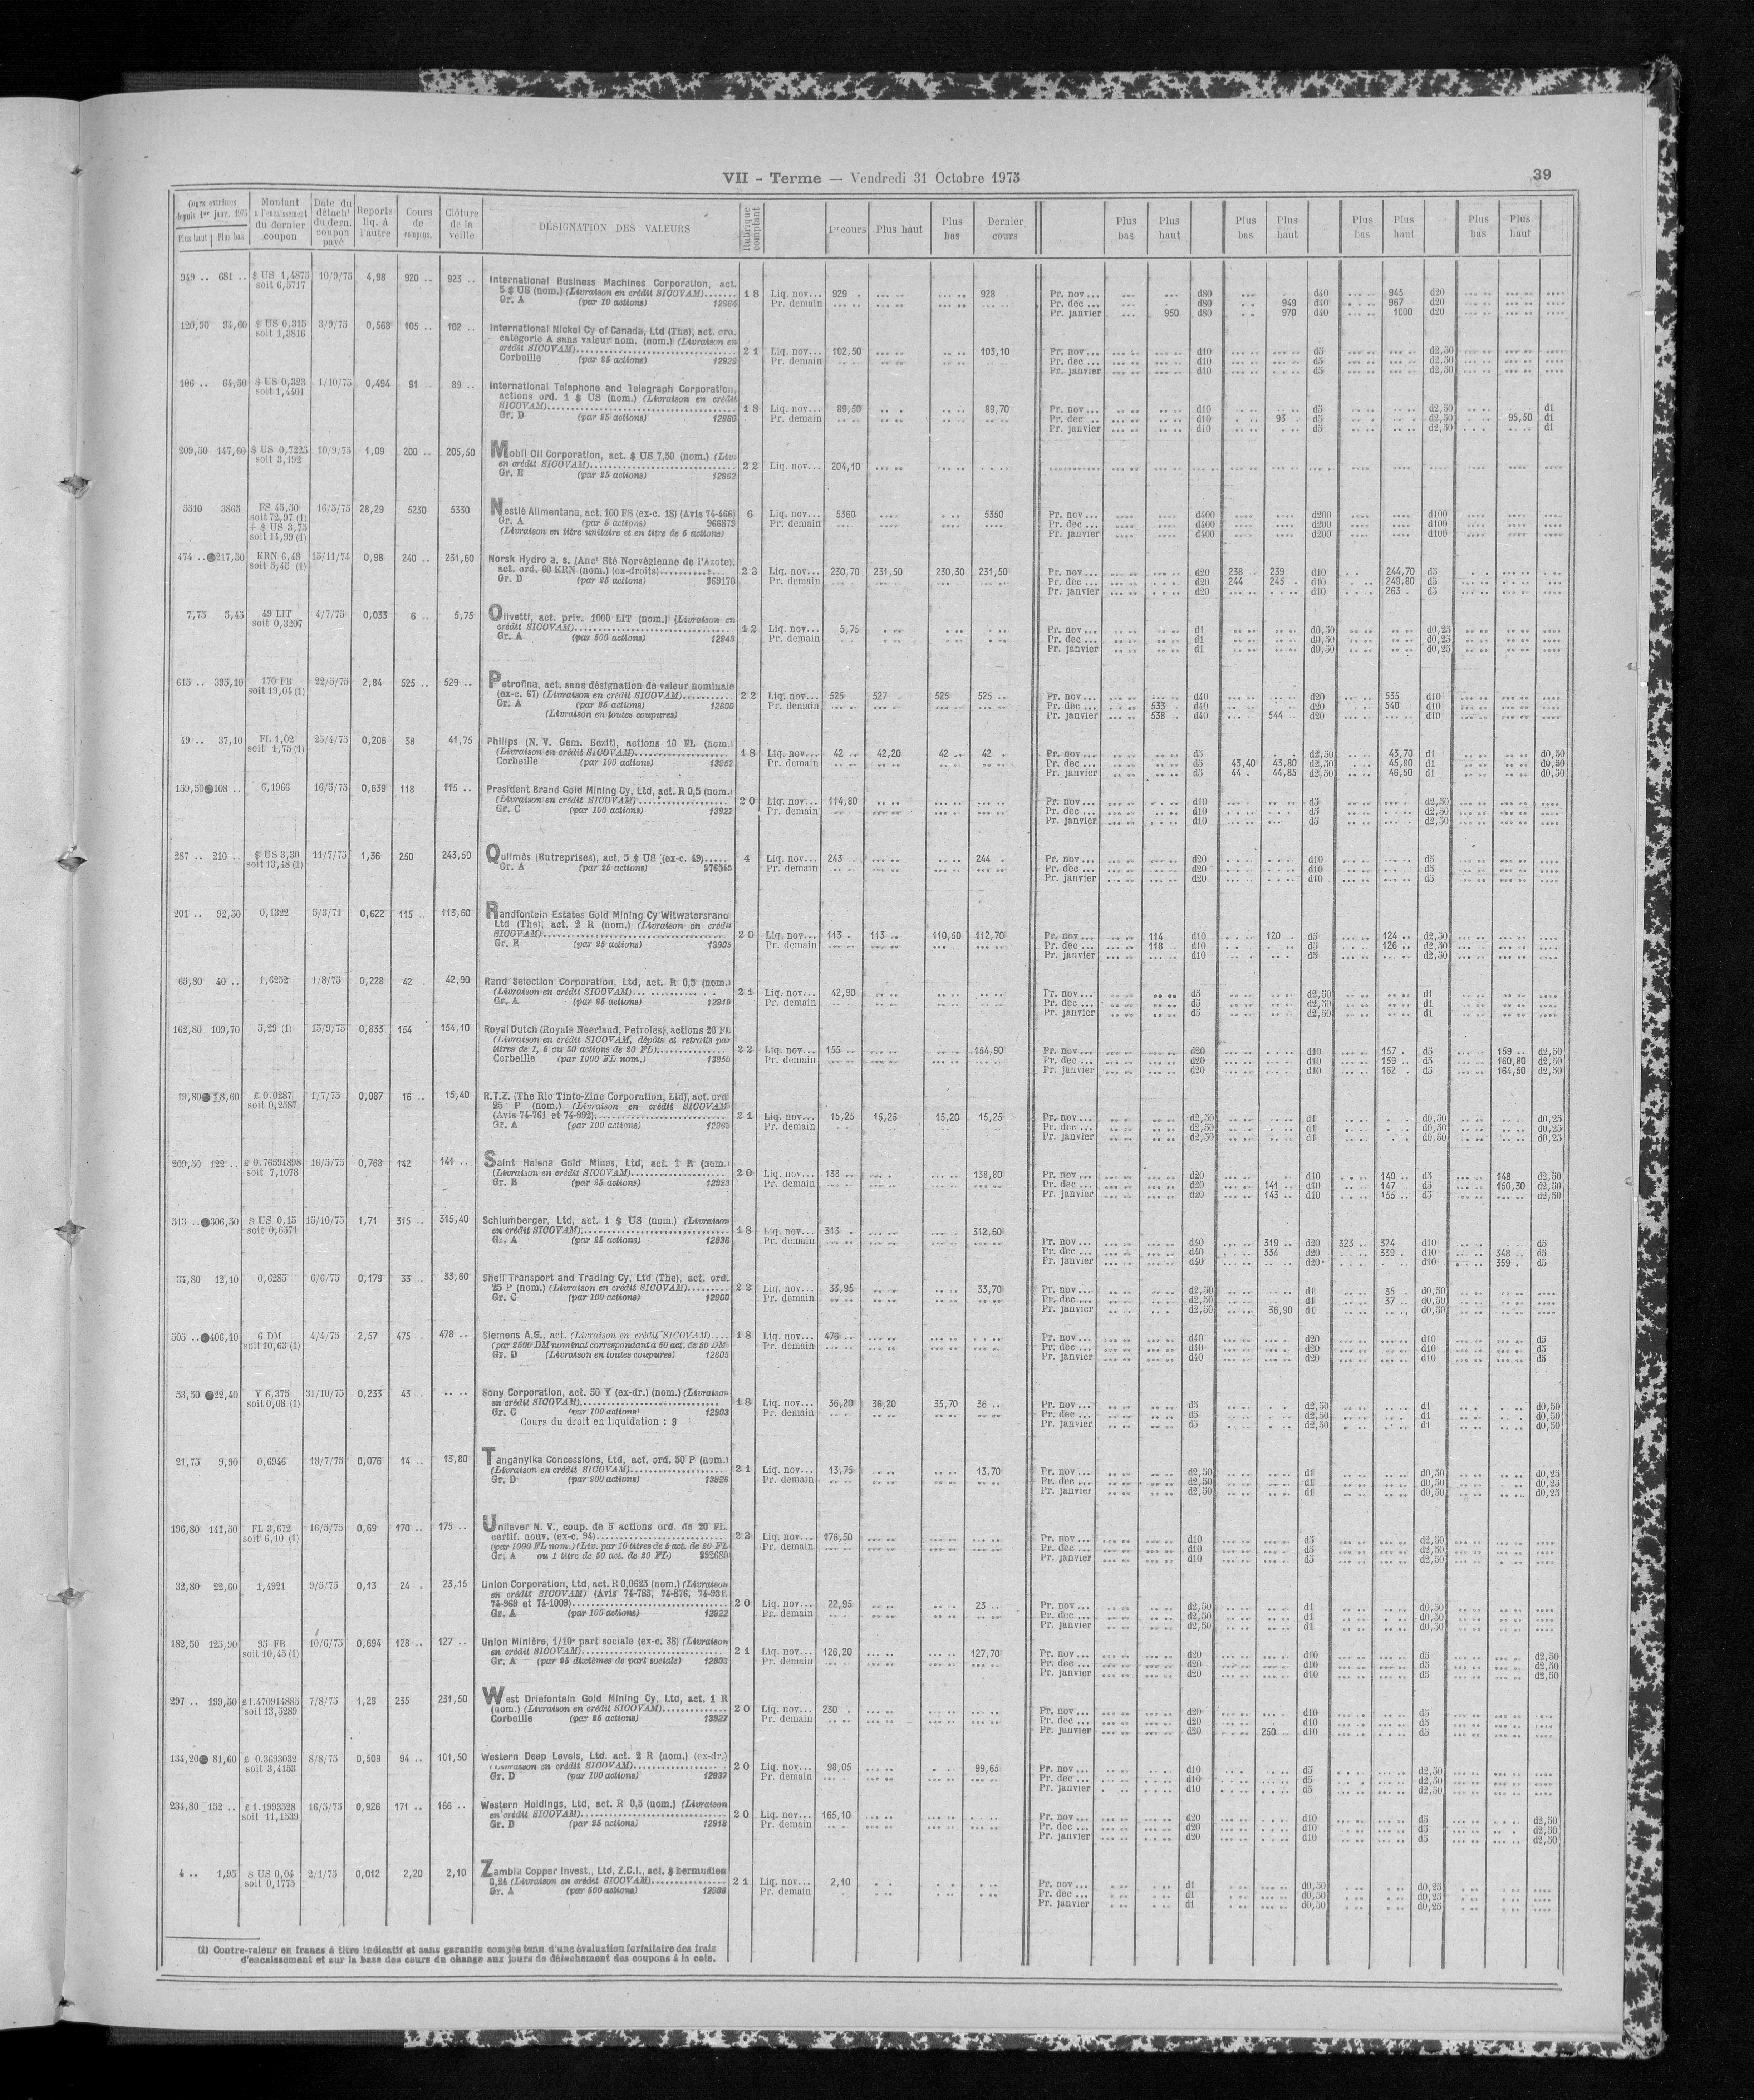 VII - Terme — Vendredi 31 Octobre 1975
39
Cours extrêmes depuis 1er janv. 1975 Plus haut Plus bas | Montant à l'encaissement du dernier coupon | Date du détacht du dern. coupon payé | Reports liq. à l'autre | Cours de compens. | Clôture de la veille | DÉSIGNATION DES VALEURS | Rubrique comptant | 1er cours | Plus haut | Plus bas | Dernier cours | Plus bas | Plus haut | Plus bas | Plus haut | Plus bas | Plus haut | Plus bas | Plus haut
949 .. 681 .. $ US 1,4875 10/9/75 4,98 920 .. 923 .. International Business Machines Corporation, act.
soit 6,5717 5 $ US (nom.) (Livraison en crédit SICOVAM) 18 Liq. nov... 929 . 928 . Pr. nov... d80 d40 945 d20
Gr. A (par 10 actions) 12984 Pr. demain Pr. dec ... d80 949 d40 967 d20
Pr. janvier 950 d80 970 d40 1000 d20
120,90 94,60 $ US 0,315 3/9/75 0,568 105 .. 102 .. International Nickel Cy of Canada, Ltd (The), act. ord.
soit 1,3816 catégorie A sans valeur nom. (nom.) (Livraison en
crédit SICOVAM) 21 Liq. nov... 102,50 103,10 Pr. nov... d10 d5 d2,50
Corbeille (par 25 actions) 12929 Pr. demain Pr. dec ... d10 d5 d2,50
Pr. janvier d10 d5 d2,50
106 .. 64,50 $ US 0,323 1/10/75 0,494 91 89 .. International Telephone and Telegraph Corporation,
soit 1,4401 actions ord. 1 $ US (nom.) (Livraison en crédit
SICOVAM) 18 Liq. nov... 89,50 89,70 Pr. nov... d10 d5 d2,50 d1
Gr. D (par 25 actions) 12980 Pr. demain Pr. dec .. d10 93 . d5 d2,50 95,50 d1
Pr. janvier d10 d5 d2,50 d1
209,50 147,60 $ US 0,7225 10/9/75 1,09 200 .. 205,50 Mobil Oil Corporation, act. $ US 7,50 (nom.) (Liv.
soit 3,192 en crédit SICOVAM) 22 Liq. nov... 204,10
Gr. E (par 25 actions) 12962
5510 3865 FS 45,50 16/5/75 28,29 5230 5330 Nestlé Alimentana, act. 100 FS (ex-c. 18) (Avis 74-466) 6 Liq. nov... 5360 5350 Pr. nov... d400 d200 d100
soit 72,97 (1) Gr. A (par 5 actions) 966879 Pr. demain Pr. dec ... d400 d200 d100
+ $ US 3,75 (Livraison en titre unitaire et en titre de 5 actions) Pr. janvier d400 d200 d100
soit 14,99 (1)
474 .. 217,50 KRN 6,48 15/11/74 0,98 240 .. 231,60 Norsk Hydro a. s. (Anct Sté Norvégienne de l'Azote),
act. ord. 60 KRN (nom.) (ex-droits) 23 Liq. nov... 230,70 231,50 230,30 231,50 Pr. nov... d20 238 .. 239 d10 244,70 d5
Gr. D (par 25 actions) 969170 Pr. demain Pr. dec ... d20 244 245 . d10 249,80 d5
Pr. janvier d20 d10 263 . d5
7,75 5,45 49 LIT 4/7/75 0,033 6 .. 5,75 Olivetti, act. priv. 1000 LIT (nom.) (Livraison en
soit 0,3207 crédit SICOVAM) 12 Liq. nov... 5,75 Pr. nov... d1 d0,50 d0,25
Gr. A (par 500 actions) 12949 Pr. demain Pr. dec ... d1 d0,50 d0,25
Pr. janvier d1 d0,50 d0,25
615 .. 395,10 170 FB 22/5/75 2,84 525 .. 529 .. Petrofina, act. sans désignation de valeur nominale
soit 19,04 (1) (ex-c. 67) (Livraison en crédit SICOVAM) 22 Liq. nov... 525 527 . 525 525 .. Pr. nov... d40 d20 535 d10
Gr. A (par 25 actions) 12800 Pr. demain Pr. dec ... 533 . d40 d20 540 . d10
(Livraison en toutes coupures) Pr. janvier 538 . d40 544 .. d20 d10
49 .. 37,10 FL 1,02 25/4/75 0,206 38 41,75 Philips (N. V. Gem. Bezit), actions 10 FL (nom.)
soit 1,75 (1) (Livraison en crédit SICOVAM) 18 Liq. nov... 42 .. 42,20 42 .. 42 . Pr. nov... d5 d2,50 43,70 d1 d0,50
Corbeille (par 100 actions) 13952 Pr. demain Pr. dec ... d5 43,40 43,80 d2,50 45,90 d1 d0,50
Pr. janvier d5 44 . 44,85 d2,50 46,50 d1 d0,50
159,50 108 .. 6,1966 16/5/75 0,639 118 115 .. President Brand Gold Mining Cy, Ltd, act. R 0,5 (nom.)
(Livraison en crédit SICOVAM) 20 Liq. nov... 114,80 Pr. nov... d10 d5 d2,50
Gr. C (par 100 actions) 13922 Pr. demain Pr. dec ... d10 d5 d2,50
Pr. janvier d10 d5 d2,50
287 .. 210 .. $ US 3,30 11/7/75 1,36 250 243,50 Quilmès (Entreprises), act. 5 $ US (ex-c. 49) 4 Liq. nov... 243 . 244 . Pr. nov... d20 d10 d5
soit 13,48 (1) Gr. A (par 25 actions) 976545 Pr. demain Pr. dec ... d20 d10 d5
Pr. janvier d20 d10 d5
201 .. 92,50 0,1322 5/3/71 0,622 115 113,60 Randfontein Estates Gold Mining Cy Witwatersrand
Ltd (The), act. 2 R (nom.) (Livraison en crédit
SICOVAM) 20 Liq. nov... 113 . 113 .. 110,50 112,70 Pr. nov... 114 d10 120 . d5 124 .. d2,50
Gr. E (par 25 actions) 13905 Pr. demain Pr. dec ... 118 . d10 d5 126 .. d2,50
Pr. janvier d10 d5 d2,50
65,80 40 .. 1,6252 1/8/75 0,228 42 .. 42,90 Rand Selection Corporation, Ltd, act. R 0,5 (nom.)
(Livraison en crédit SICOVAM) 21 Liq. nov... 42,90 Pr. nov... d5 d2,50 d1
Gr. A (par 25 actions) 12919 Pr. demain Pr. dec ... d5 d2,50 d1
Pr. janvier d5 d2,50 d1
162,80 109,70 5,29 (1) 15/9/75 0,833 154 154,10 Royal Dutch (Royale Neerland, Petroles), actions 20 FL
(Livraison en crédit SICOVAM, dépôts et retraits par
titres de 1, 5 ou 50 actions de 20 FL) 22 Liq. nov... 155 .. 154,90 Pr. nov... d20 d10 157 . d5 159 .. d2,50
Corbeille (par 1000 FL nom.) 13950 Pr. demain Pr. dec ... d20 d10 159 .. d5 160,80 d2,50
Pr. janvier d20 d10 162 . d5 164,50 d2,50
19,80 8,60 £ 0.0287 1/7/75 0,087 16 .. 15,40 R.T.Z. (The Rio Tinto-Zinc Corporation, Ltd), act. ord.
soit 0,2587 25 P (nom.) (Livraison en crédit SICOVAM)
(Avis 74-761 et 74-992) 21 Liq. nov... 15,25 15,25 15,20 15,25 Pr. nov... d2,50 d1 d0,50 d0,25
Gr. A (par 100 actions) 12963 Pr. demain Pr. dec ... d2,50 d1 d0,50 d0,25
Pr. janvier d2,50 d1 d0,50 d0,25
209,50 122 .. £ 0.76594898 16/5/75 0,768 142 141 .. Saint Helena Gold Mines, Ltd, act. 1 R (nom.)
soit 7,1078 (Livraison en crédit SICOVAM) 20 Liq. nov... 138 .. 138,80 Pr. nov... d20 d10 140 .. d5 148 d2,50
Gr. E (par 25 actions) 12938 Pr. demain Pr. dec ... d20 141 .. d10 147 d5 150,30 d2,50
Pr. janvier d20 143 .. d10 155 .. d5 d2,50
513 .. 306,50 $ US 0,15 15/10/75 1,71 315 .. 315,40 Schlumberger, Ltd, act. 1 $ US (nom.) (Livraison
soit 0,6571 en crédit SICOVAM) 18 Liq. nov... 313 . 312,60 Pr. nov... d40 319 .. d20 323 .. 324 d10 d5
Gr. A (par 25 actions) 12936 Pr. demain Pr. dec ... d40 334 d20 339 . d10 348 .. d5
Pr. janvier d40 d20 d10 359 . d5
34,80 12,10 0,6285 6/6/75 0,179 33 .. 33,60 Shell Transport and Trading Cy, Ltd (The), act. ord.
25 P (nom.) (Livraison en crédit SICOVAM) 22 Liq. nov... 33,95 33,70 Pr. nov... d2,50 d1 35 . d0,50
Gr. C (par 100 actions) 12900 Pr. demain Pr. dec ... d2,50 d1 37 .. d0,50
Pr. janvier d2,50 36,90 d1 d0,50
505 .. 406,10 6 DM 4/4/75 2,57 475 478 .. Siemens A.G., act. (Livraison en crédit SICOVAM) 18 Liq. nov... 476 .. Pr. nov... d40 d20 d10 d5
soit 10,63 (1) (par 2500 DM nominal correspondant à 50 act. de 50 DM Pr. demain Pr. dec ... d40 d20 d10 d5
Gr. D (Livraison en toutes coupures) 12805 Pr. janvier d40 d20 d10 d5
53,50 22,40 Y 6,375 31/10/75 0,233 43 . .. .. Sony Corporation, act. 50 Y (ex-dr.) (nom.) (Livraison
soit 0,08 (1) en crédit SICOVAM) 18 Liq. nov... 36,20 36,20 35,70 36 .. Pr. nov... d5 d2,50 d1 d0,50
Gr. C (par 100 actions) 12903 Pr. demain Pr. dec ... d5 d2,50 d1 d0,50
Cours du droit en liquidation : 9 Pr. janvier d5 d2,50 d1 d0,50
21,75 9,90 0,6946 18/7/75 0,076 14 .. 13,80 Tanganyika Concessions, Ltd, act. ord. 50 P (nom.)
(Livraison en crédit SICOVAM) 21 Liq. nov... 13,75 13,70 Pr. nov... d2,50 d1 d0,50 d0,25
Gr. D (par 200 actions) 13926 Pr. demain Pr. dec ... d2,50 d1 d0,50 d0,25
Pr. janvier d2,50 d1 d0,50 d0,25
196,80 141,50 FL 3,672 16/5/75 0,69 170 .. 175 .. Unilever N. V., coup. de 5 actions ord. de 20 FL
soit 6,10 (1) certif. nouv. (ex-c. 94) 23 Liq. nov... 176,50 Pr. nov... d10 d5 d2,50
(par 1000 FL nom.) (Liv. par 10 titres de 5 act. de 20 FL Pr. demain Pr. dec ... d10 d5 d2,50
Gr. A ou 1 titre de 50 act. de 20 FL) 992680 Pr. janvier d10 d5 d2,50
32,80 22,60 1,4921 9/5/75 0,13 24 . 23,15 Union Corporation, Ltd, act. R 0,0625 (nom.) (Livraison
en crédit SICOVAM) (Avis 74-783, 74-876, 74-931,
74-969 et 74-1009) 20 Liq. nov... 22,95 23 .. Pr. nov... d2,50 d1 d0,50
Gr. A (par 100 actions) 12922 Pr. demain Pr. dec ... d2,50 d1 d0,50
Pr. janvier d2,50 d1 d0,50
182,50 125,90 95 FB 10/6/75 0,694 128 .. 127 .. Union Minière, 1/10e part sociale (ex-c. 38) (Livraison
soit 10,45 (1) en crédit SICOVAM) 21 Liq. nov... 126,20 127,70 Pr. nov... d20 d10 d5 d2,50
Gr. A (par 25 dixièmes de part sociale) 12802 Pr. demain Pr. dec ... d20 d10 d5 d2,50
Pr. janvier d20 d10 d5 d2,50
297 .. 199,50 £1.470914885 7/8/75 1,28 235 231,50 West Driefontein Gold Mining Cy, Ltd, act. 1 R
soit 13,5289 (nom.) (Livraison en crédit SICOVAM) 20 Liq. nov... 230 . Pr. nov... d20 d10 d5
Corbeille (par 25 actions) 13927 Pr. demain Pr. dec ... d20 d10 d5
Pr. janvier d20 250 .. d10 d5
134,20 81,60 £ 0.3693032 8/8/75 0,509 94 .. 101,50 Western Deep Levels, Ltd. act. 2 R (nom.) (ex-dr.)
soit 3,4153 (Livraison en crédit SICOVAM) 20 Liq. nov... 98,05 99,65 Pr. nov... d10 d5 d2,50
Gr. D (par 100 actions) 12937 Pr. demain Pr. dec ... d10 d5 d2,50
Pr. janvier d10 d5 d2,50
234,80 152 .. £ 1.1993528 16/5/75 0,926 171 .. 166 .. Western Holdings, Ltd, act. R 0,5 (nom.) (Livraison
soit 11,1539 en crédit SICOVAM) 20 Liq. nov... 165,10 Pr. nov... d20 d10 d5 d2,50
Gr. D (par 25 actions) 12918 Pr. demain Pr. dec ... d20 d10 d5 d2,50
Pr. janvier d20 d10 d5 d2,50
4 .. 1,95 $ US 0,04 2/1/75 0,012 2,20 2,10 Zambia Copper Invest., Ltd, Z.C.I., act. $ bermudien
soit 0,1775 0,24 (Livraison en crédit SICOVAM) 21 Liq. nov... 2,10 Pr. nov... d1 d0,50 d0,25
Gr. A (par 500 actions) 12908 Pr. demain Pr. dec ... d1 d0,50 d0,25
Pr. janvier d1 d0,50 d0,25
(1) Contre-valeur en francs à titre indicatif et sans garantie compte tenu d'une évaluation forfaitaire des frais
d'encaissement et sur la base des cours du change aux jours de détachement des coupons à la cote.